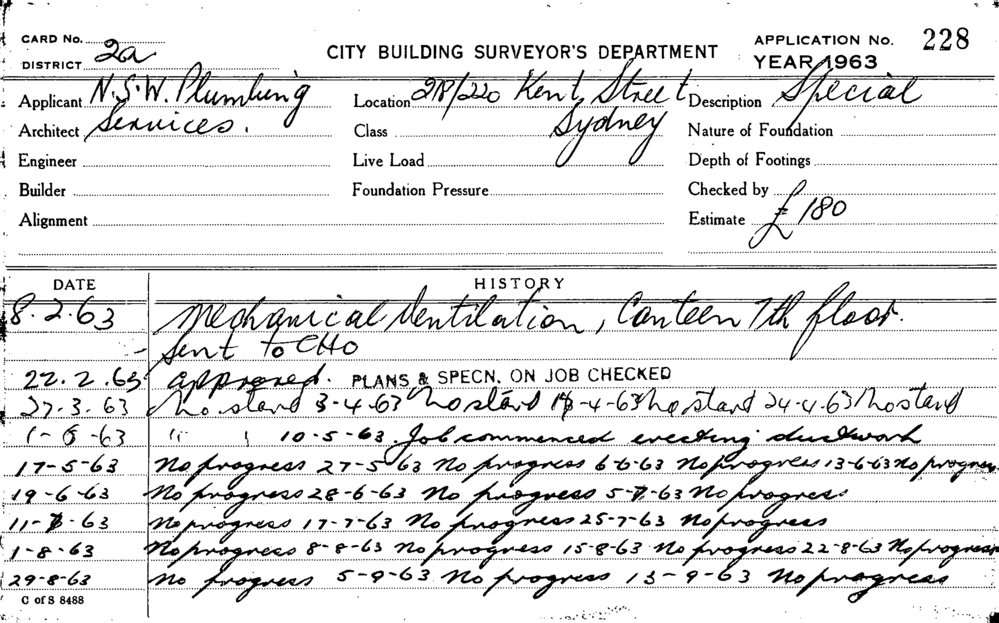 CARD No. 2a
DISTRICT
CITY BUILDING SURVEYOR'S DEPARTMENT
APPLICATION No. 228
YEAR 1963
Applicant N.S.W. Plumbing
Location 218/220 Kent Street
Description Special
Architect Services.
Class Sydney
Nature of Foundation
Engineer
Live Load
Depth of Footings
Builder
Foundation Pressure
Checked by
Alignment
Estimate £180
DATE HISTORY
8.2.63 Mechanical Ventilation, Canteen 7th floor.
Sent to CHO
22.2.63 approved. PLANS & SPECN. ON JOB CHECKED
27.3.63 No start 3-4-63 No start 18-4-63 No start 24-4-63 No start
1-5-63 " " 10-5-63 Job commenced erecting ductwork
17-5-63 No progress 27-5-63 No progress 6-6-63 No progress 13-6-63 No progress
19-6-63 No progress 28-6-63 No progress 5-7-63 No progress
11-7-63 No progress 17-7-63 No progress 25-7-63 No progress
1-8-63 No progress 8-8-63 No progress 15-8-63 No progress 22-8-63 No progress
29-8-63 No progress 5-9-63 No progress 13-9-63 No progress
C of S 8488